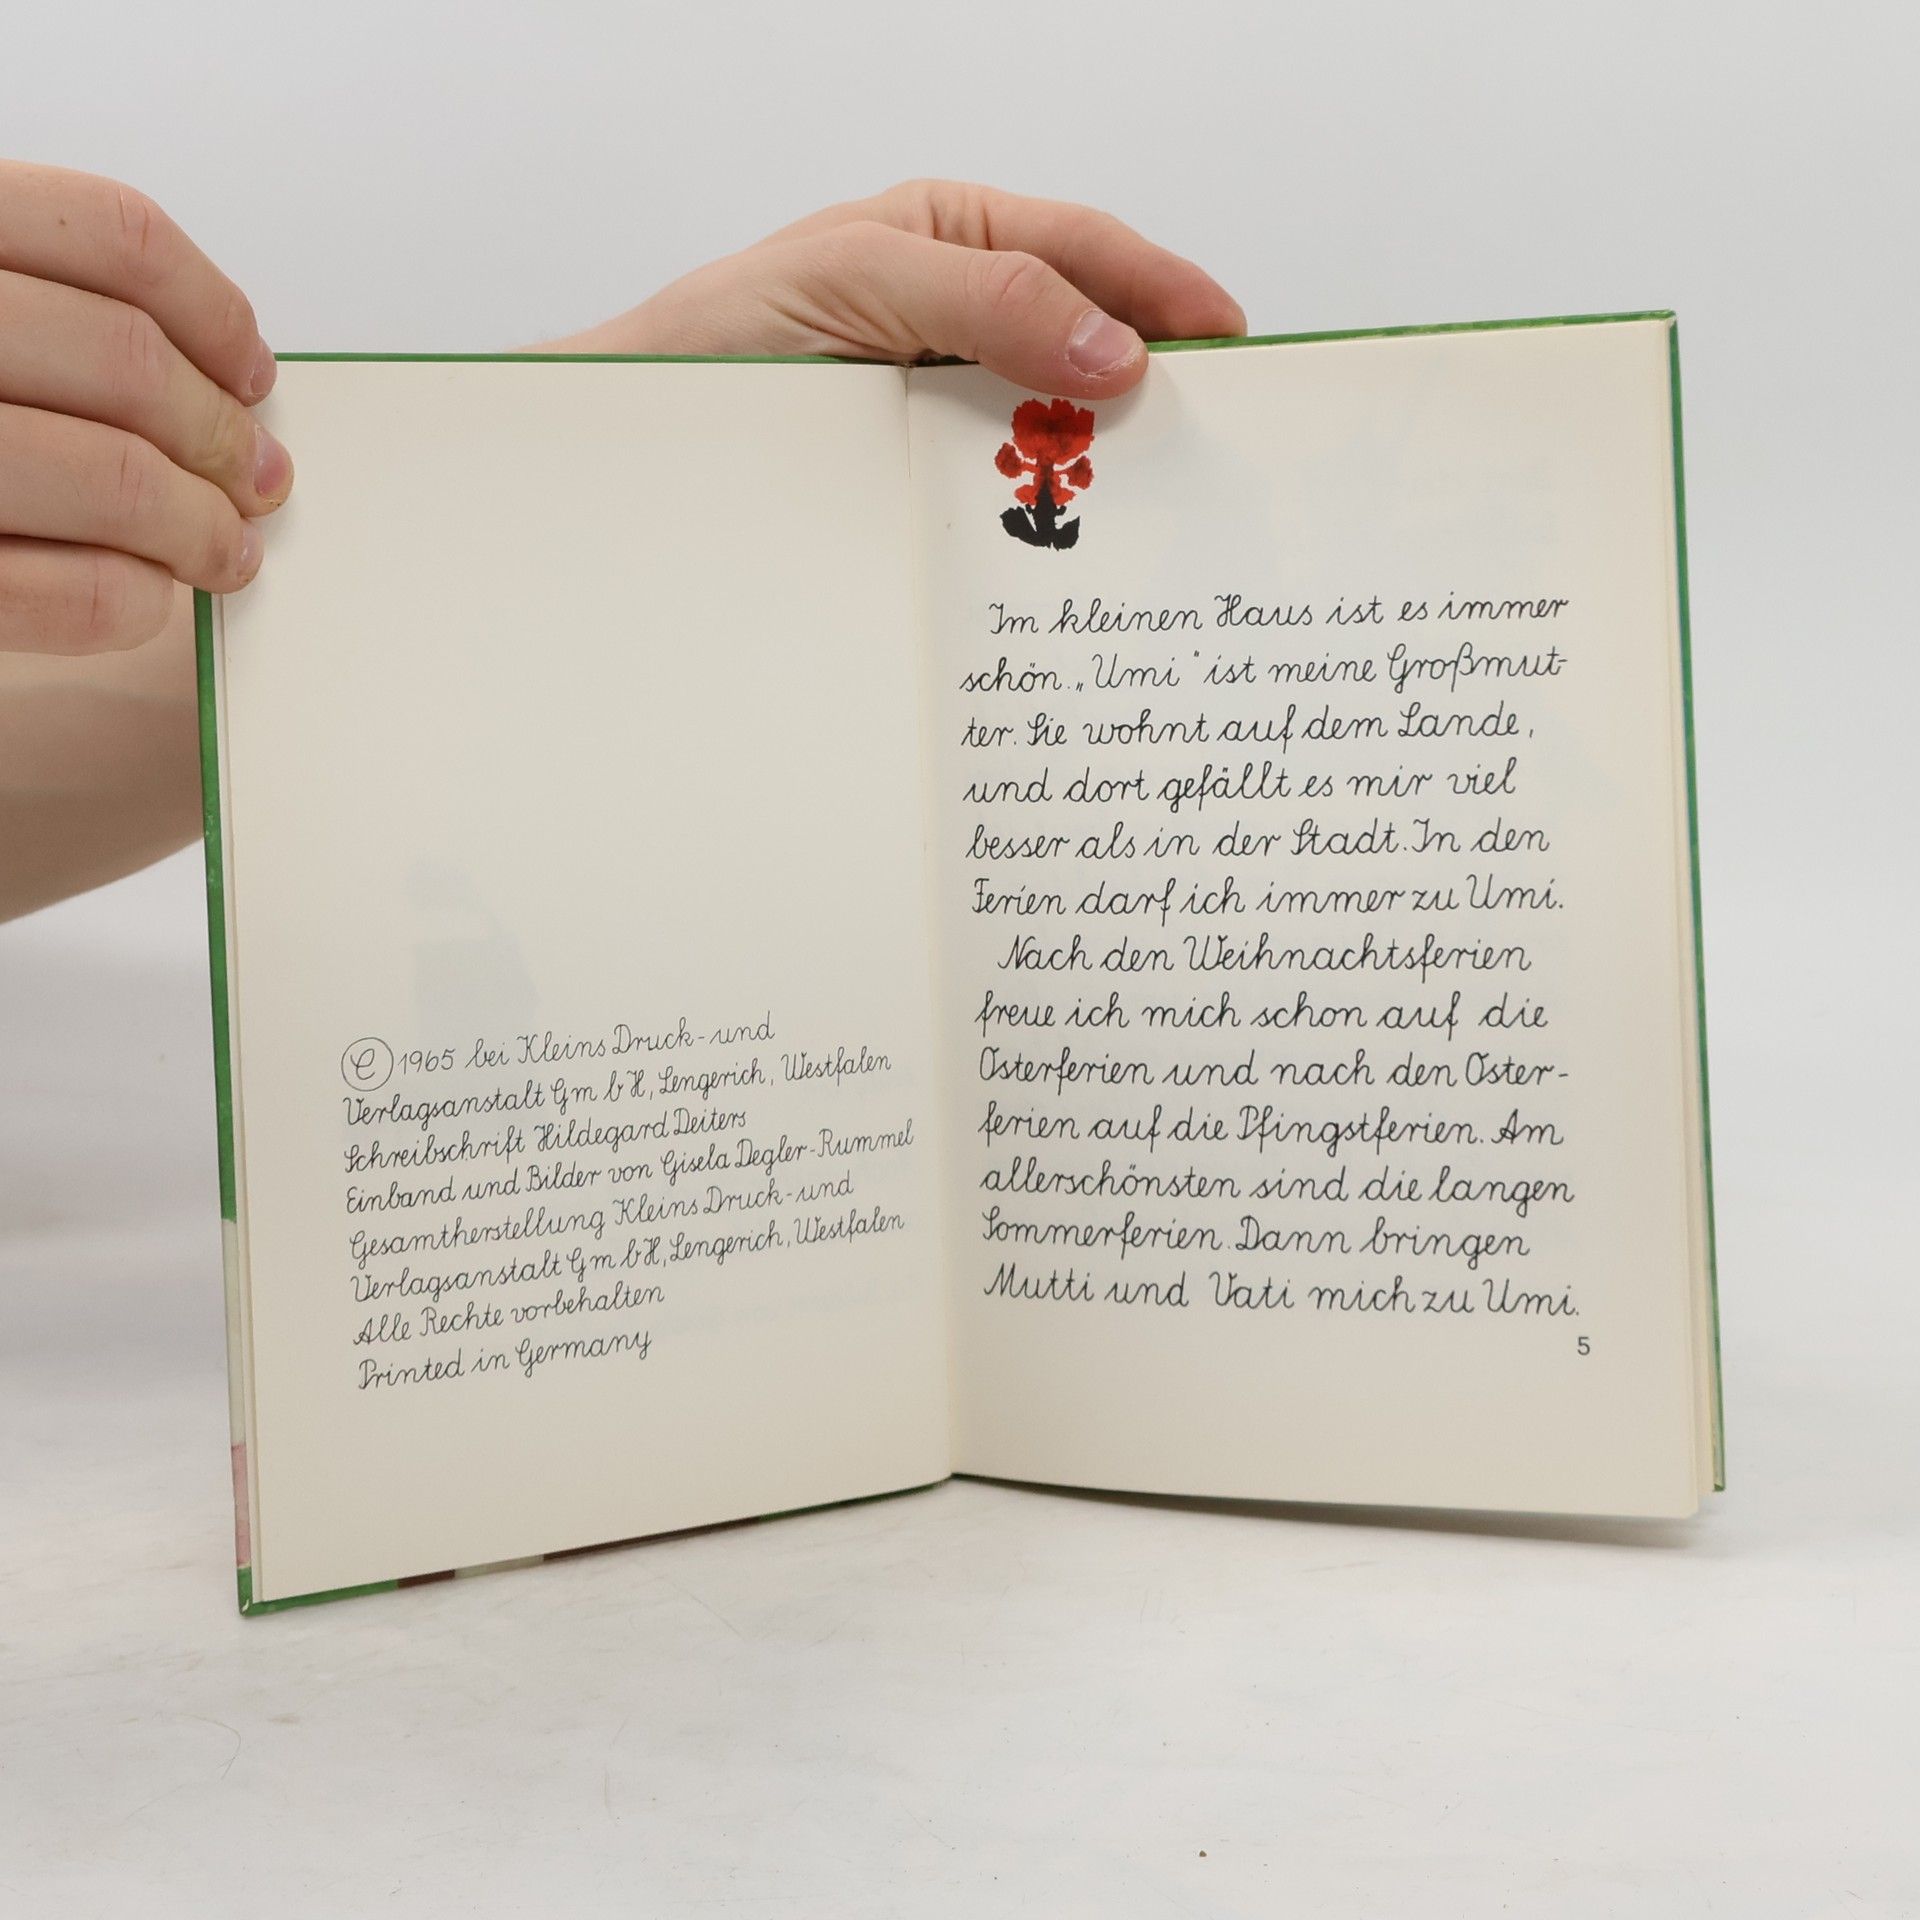 © 1965 bei Kleins Druck- und
Verlagsanstalt GmbH, Lengerich, Westfalen
Schreibschrift Hildegard Deiters
Einband und Bilder von Gisela Degler-Rummel
Gesamtherstellung Kleins Druck- und
Verlagsanstalt GmbH, Lengerich, Westfalen
Alle Rechte vorbehalten
Printed in Germany
Im kleinen Haus ist es immer
schön. „Umi“ ist meine Großmut-
ter. Sie wohnt auf dem Lande,
und dort gefällt es mir viel
besser als in der Stadt. In den
Ferien darf ich immer zu Umi.
Nach den Weihnachtsferien
freue ich mich schon auf die
Osterferien und nach den Oster-
ferien auf die Pfingstferien. Am
allerschönsten sind die langen
Sommerferien. Dann bringen
Mutti und Vati mich zu Umi.
5